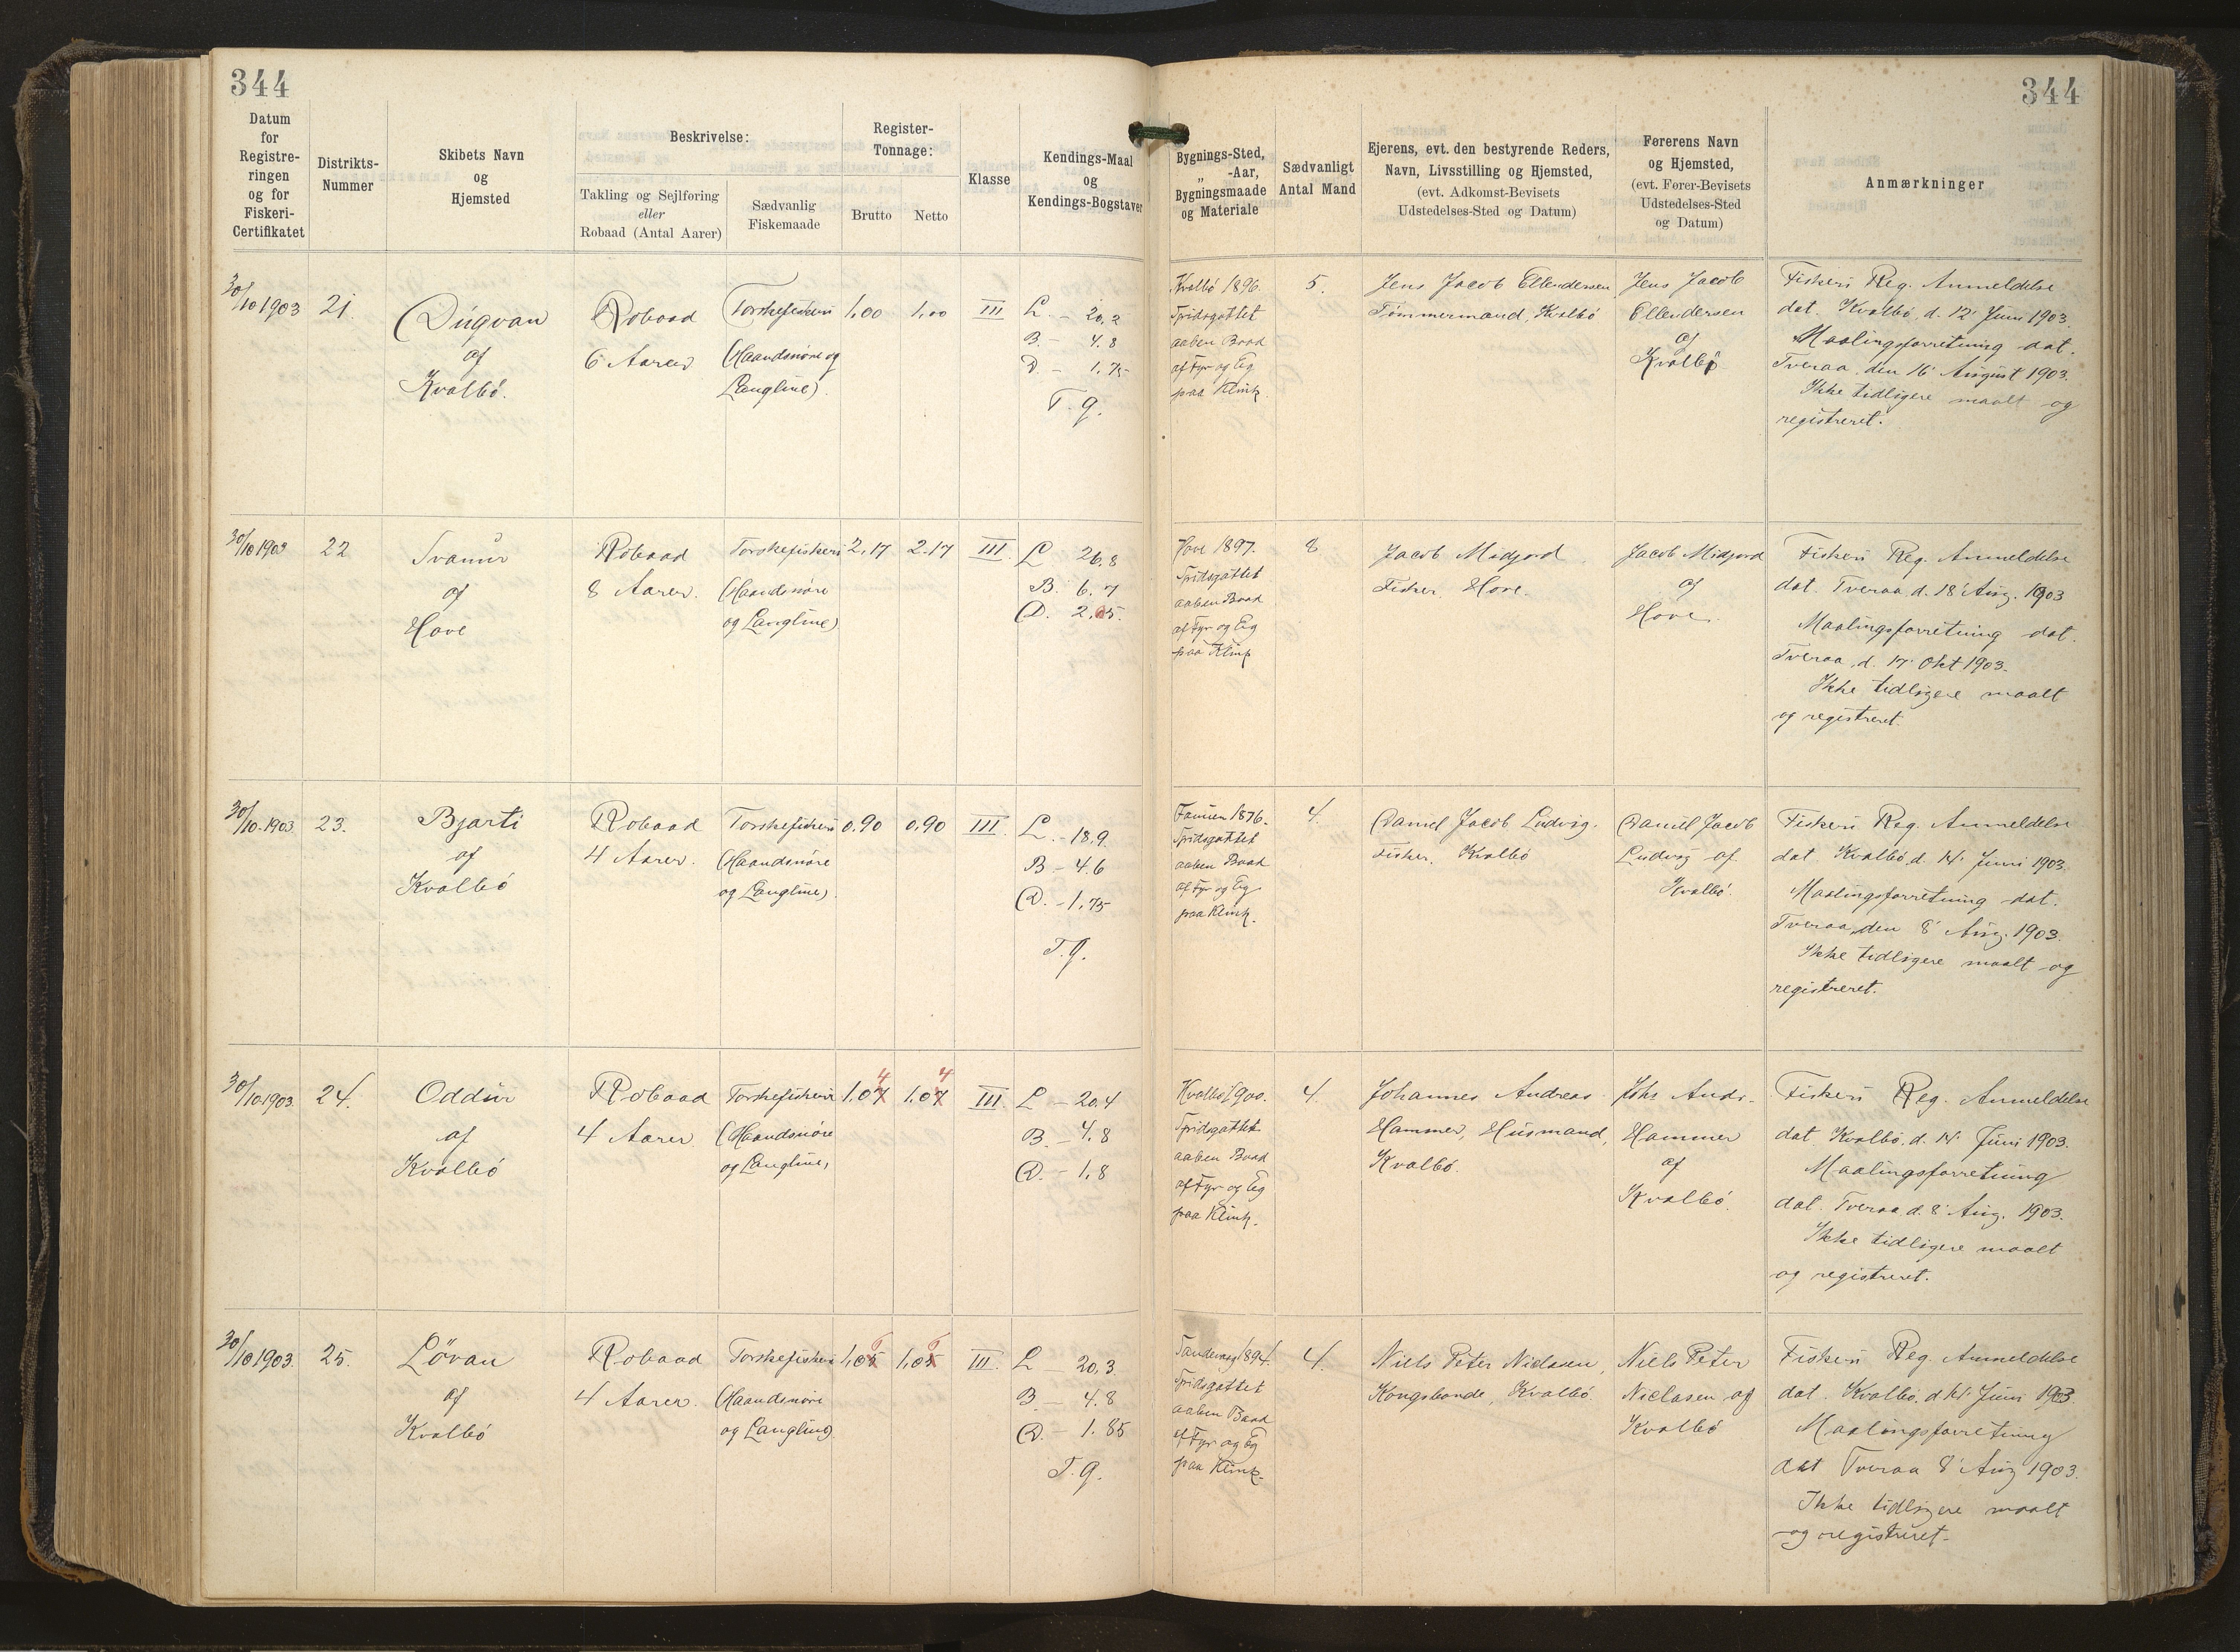 344
344
Datum
for
Registre-
ringen
og for
Fiskeri-
Certifikatet
Distrikts-
Nummer
Skibets Navn
og
Hjemsted
Beskrivelse:
Takling og Sejlføring
eller
Robaad (Antal Aarer)
Sædvanlig
Fiskemaade
Register-
Tonnage:
Brutto
Netto
Klasse
Kendings-Maal
og
Kendings-Bogstaver
Bygnings-Sted,
„ -Aar,
Bygningsmaade
og Materiale
Sædvanligt
Antal Mand
Ejerens, evt. den bestyrende Reders,
Navn, Livsstilling og Hjemsted,
(evt. Adkomst-Bevisets
Udstedelses-Sted og Datum)
Førerens Navn
og Hjemsted,
(evt. Fører-Bevisets
Udstedelses-Sted
og Datum)
Anmærkninger
30/10 1903
21.
Dúgvan
af
Kvalbö.
Robaad
6 Aarer
Torskefiskeri
(Haandsnöre og
Langline)
1,00
1,00
III
L. – 20,2
B. – 4.8
D. – 1,75
T. g.
Kvalbö 1896.
Spidsgattet
aaben Baad
af Fyr og Eg
paa Klink.
5.
Jens Jacob Ellendersen
Tømmermand, Kvalbö
Jens Jacob
Ellendersen
af
Kvalbö
Fiskeri Reg. Anmeldelse
dat. Kvalbö, d. 12' Juni 1903.
Maalingsforretning dat.
Tveraa, den 16' August 1903.
Ikke tidligere maalt og
registreret.
30/10 1903
22
Svanur
af
Hove
Robaad
8 Aarer.
Torskefiskeri
(Haandsnöre
og Langline)
2,17
2.17
III.
L 26.8
B. 6.7
D. 2.25.
Hove 1897.
Spidsgattet
aaben Baad
af Fyr og Eg
paa Klink
8
Jacob Midjord
Fisker. Hove.
Jacob Midjord
af
Hove.
Fiskeri Reg. Anmeldelse
dat. Tveraa d. 18' Aug. 1903
Maalingsforretning dat.
Tveraa, d. 17' Okt 1903.
Ikke tidligere maalt
og registreret.
30/10.1903.
23.
Bjarti
af
Kvalbö
Robaad
4 Aarer.
Torskefiskeri
(Haandsnöre
og Langline)
0,90
0,90
III.
L. – 18,9.
B – 4.6
D. – 1,75
T. g.
Famien 1876.
Spidsgattet
aaben Baad
af Fyr og Eg
paa Klink.
4.
Daniel Jacob Ludvig.
Fisker. Kvalbö
Daniel Jacob
Ludvig af
Kvalbö.
Fiskeri Reg. Anmeldelse
dat. Kvalbö, d. 14' Juni 1903.
Maalingsforretning dat.
Tveraa, den 8' Aug. 1903.
Ikke tidligere maalt og
registreret.
30/10.1903.
24.
Oddur
af
Kvalbö
Robaad
4 Aarer.
Torskefiskeri
(Haandsnöre
og Langline,
4 4
1.07
1.07
III.
L – 20,4
B. – 4.8
D. – 1,8
Kvalbö 1900.
Spidsgattet
aaben Baad
af Fyr og Eg
paa Klink.
4.
Johannes Andreas
Hammer, Husmand,
Kvalbö.
Johs Andr.
Hammer
af
Kvalbö.
Fiskeri Reg. Anmeldelse
dat. Kvalbö, d. 14' Juni 1903.
Maalingsforretning
dat. Tveraa d. 8' Aug. 1903.
Ikke tidligere maalt
og registreret.
30/10 1903.
25.
Lövan
af
Kvalbö
Robaad
4 Aarer.
Torskefiskeri
(Haandsnöre
og Langline)
1,05
1,05
III.
L – 20,3
B – 4.8
D. – 1.85
T. g.
Sandevaag 1894.
Spidsgattet
aaben Baad
af Fyr og Eg
paa Klink.
4.
Niels Peter Niclasen,
Kongsbonde, Kvalbö
Niels Peter
Niclasen af
Kvalbö
Fiskeri Reg. Anmeldelse
dat. Kvalbö, d. 14' Juni 1903.
Maalingsforretning
dat Tveraa 8' Aug 1903.
Ikke tidligere maalt
og registreret.